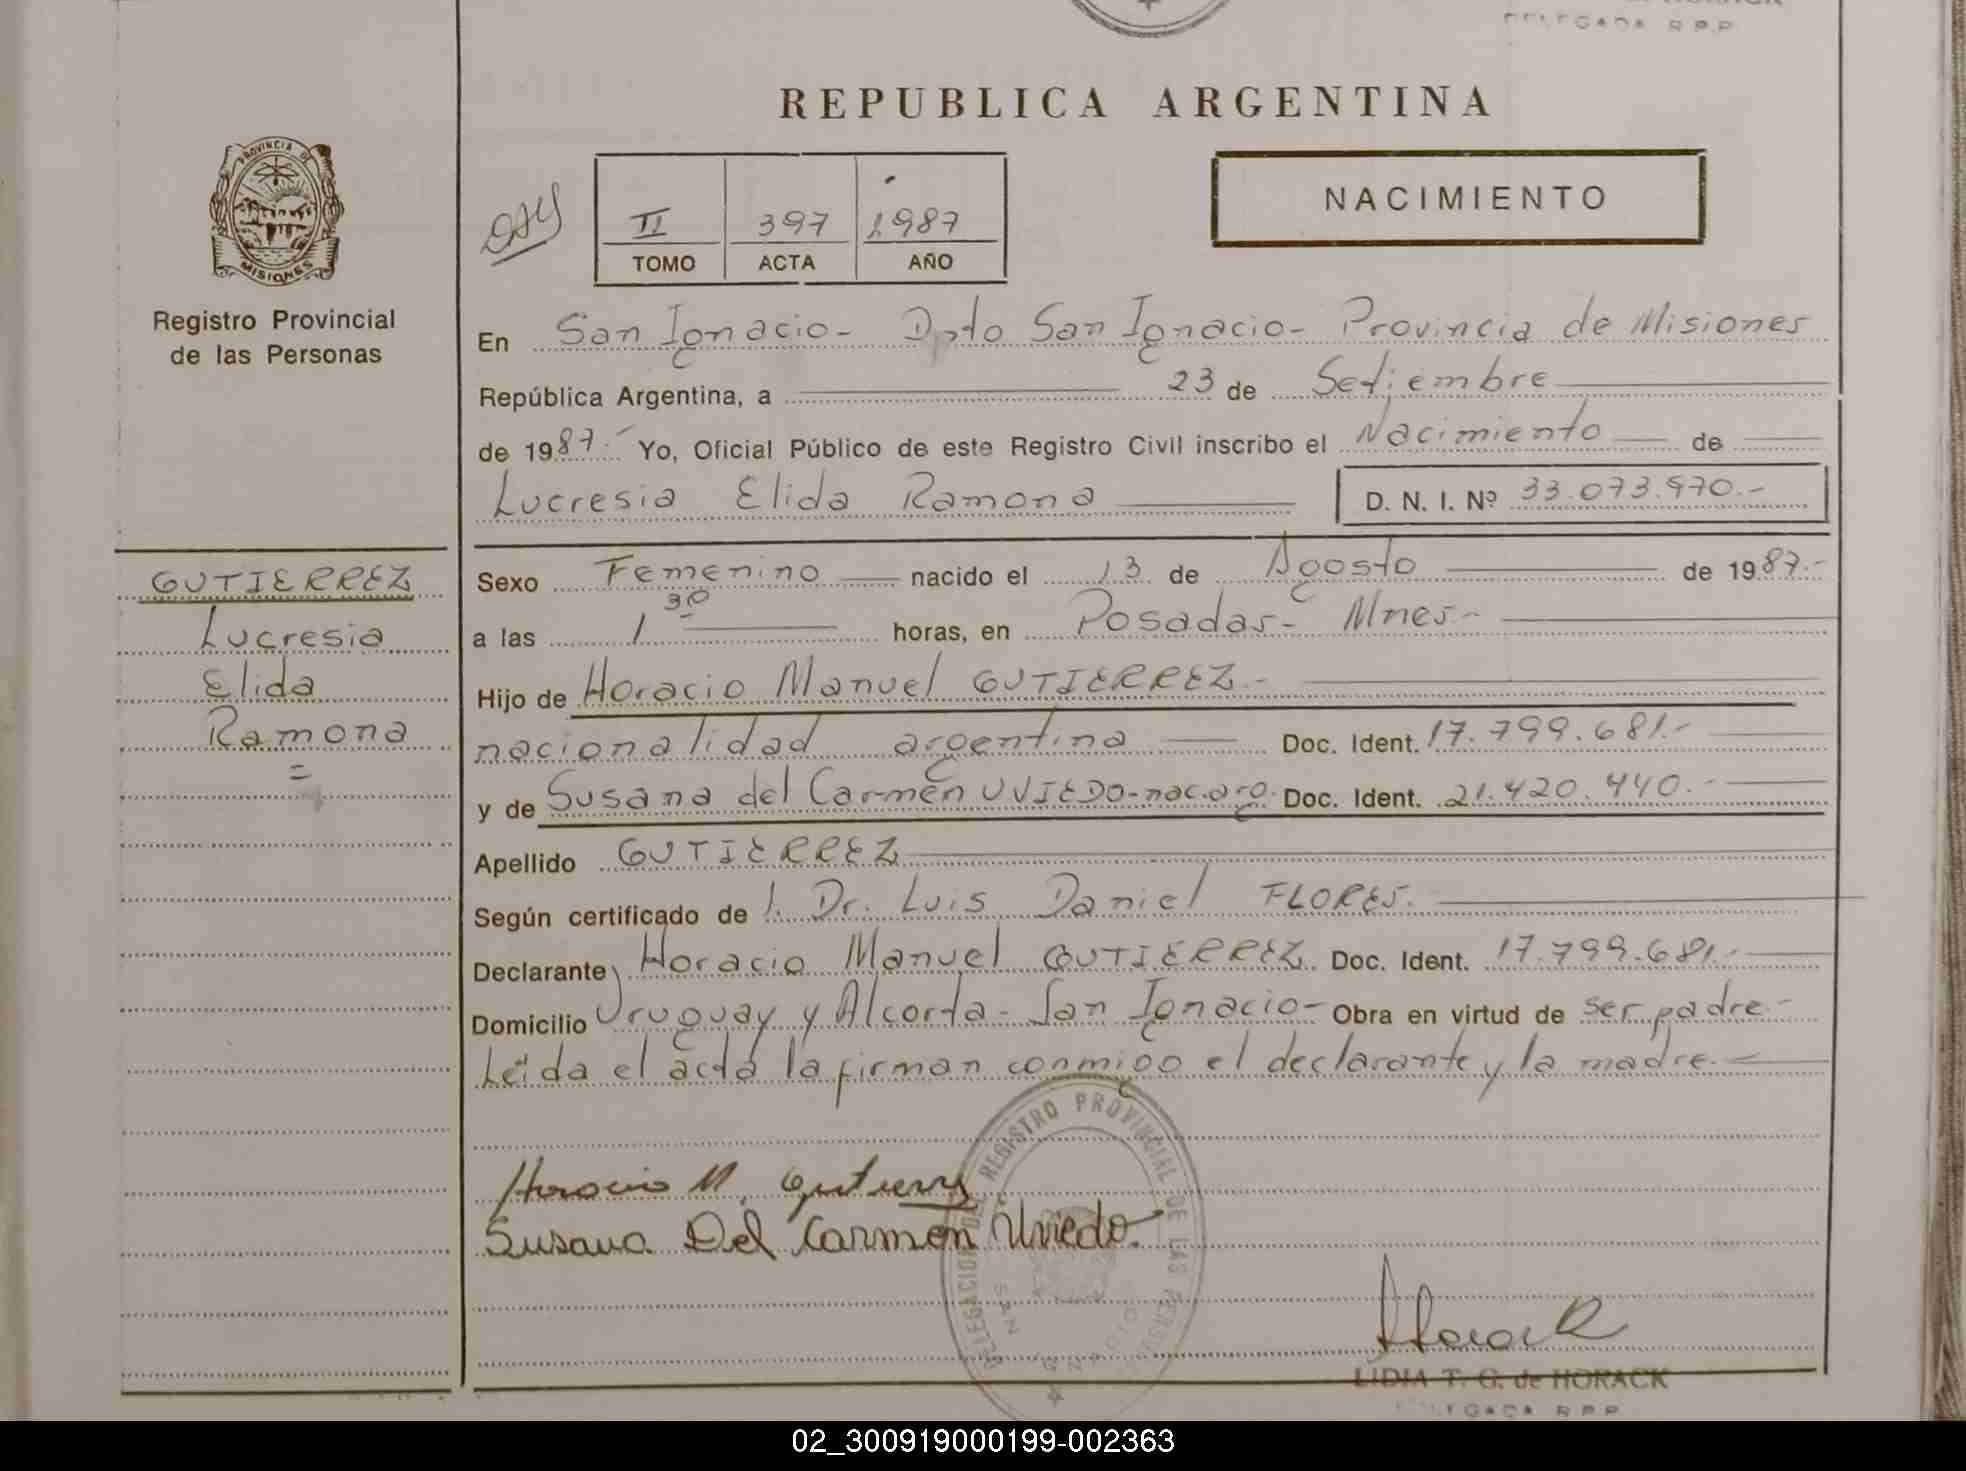 DELEGADA R.P.P.
REPUBLICA ARGENTINA
PROVINCIA DE
MISIONES
Registro Provincial
de las Personas
II 397 1987
TOMO ACTA AÑO
NACIMIENTO
En San Ignacio- Dpto San Ignacio- Provincia de Misiones
República Argentina, a 23 de Setiembre
de 1987.- Yo, Oficial Público de este Registro Civil inscribo el Nacimiento de
Lucresia Elida Ramona D. N. I. Nº 33.073.970.-
GUTIERREZ
Lucresia
Elida
Ramona
Sexo Femenino nacido el 13 de Agosto de 1987.-
a las 1 30 horas, en Posadas- Mnes-
Hijo de Horacio Manuel GUTIERREZ.-
nacionalidad argentina Doc. Ident. 17.799.681.-
y de Susana del Carmen UVIEDO-nac.arg. Doc. Ident. 21.420.440.-
Apellido GUTIERREZ
Según certificado de l. Dr. Luis Daniel FLORES.
Declarante Horacio Manuel GUTIERREZ. Doc. Ident. 17.799.681.-
Domicilio Uruguay y Alcorta- San Ignacio- Obra en virtud de ser padre.-
Leida el acta la firman conmigo el declarante y la madre.-
Horacio M. Gutierrez
Susana Del Carmen Uviedo.
DELEGACION DEL REGISTRO PROVINCIAL DE LAS PERSONAS
SAN IGNACIO
Horack
LIDIA T. G. de HORACK
DELEGADA R.P.P.
02_300919000199-002363